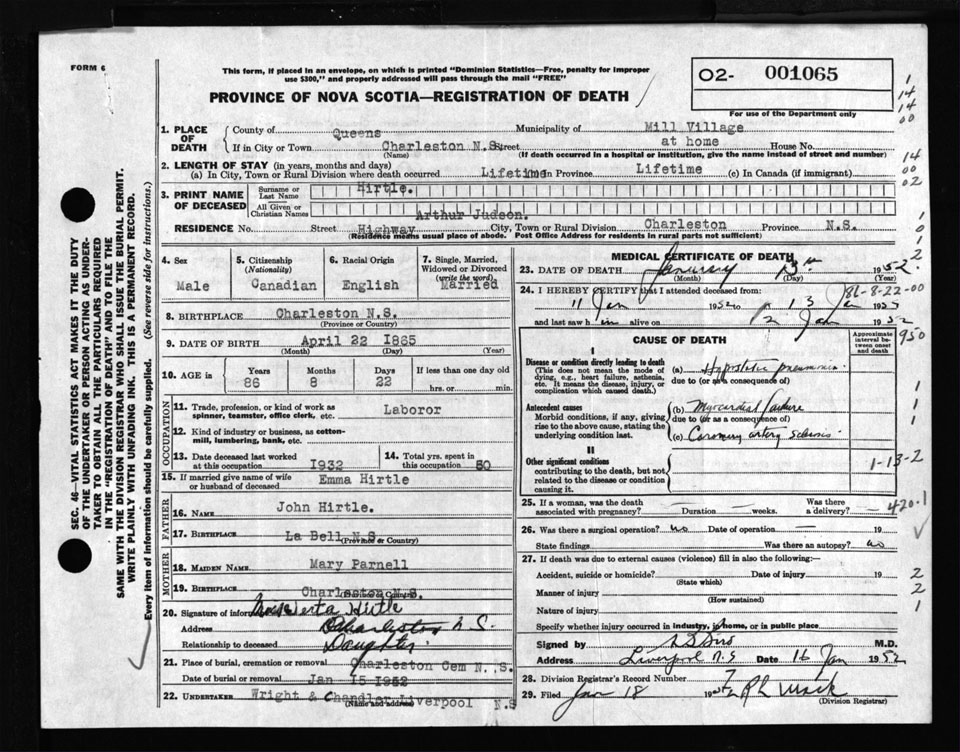 FORM 6
This form, if placed in an envelope, on which is printed "Dominion Statistics—Free, penalty for improper
use $300," and properly addressed will pass through the mail "FREE"
PROVINCE OF NOVA SCOTIA—REGISTRATION OF DEATH
O2- 001065
For use of the Department only
1. PLACE OF DEATH
County of Queens Municipality of Mill Village
If in City or Town Charleston N.S. Street at home House No.
(Name) (If death occurred in a hospital or institution, give the name instead of street and number)
2. LENGTH OF STAY (in years, months and days)
(a) In City, Town or Rural Division where death occurred Lifetime (b) In Province Lifetime (c) In Canada (if immigrant)
3. PRINT NAME OF DECEASED
Surname or Last Name Hirtle.
All Given or Christian Names Arthur Judson.
RESIDENCE No. Street Highway City, Town or Rural Division Charleston Province N.S.
(Residence means usual place of abode. Post Office Address for residents in rural parts not sufficient)
4. Sex Male
5. Citizenship (Nationality) Canadian
6. Racial Origin English
7. Single, Married, Widowed or Divorced (write the word) Married
8. BIRTHPLACE Charleston N.S.
(Province or Country)
9. DATE OF BIRTH April 22 1865
(Month) (Day) (Year)
10. AGE in Years 86 Months 8 Days 22 If less than one day old hrs. or min.
OCCUPATION
11. Trade, profession, or kind of work as spinner, teamster, office clerk, etc. Laboror
12. Kind of industry or business, as cotton-mill, lumbering, bank, etc.
13. Date deceased last worked at this occupation 1932
14. Total yrs. spent in this occupation 50
15. If married give name of wife or husband of deceased Emma Hirtle
FATHER
16. NAME John Hirtle.
17. BIRTHPLACE La Bell N.S.
(Province or Country)
MOTHER
18. MAIDEN NAME Mary Parnell
19. BIRTHPLACE Charleston N.S.
20. Signature of informant Hirtle
Address Charleston N S.
Relationship to deceased Daughter.
21. Place of burial, cremation or removal Charleston Cem N. S.
Date of burial or removal Jan 15 1952
22. UNDERTAKER Wright & Chandler Liverpool N.S
(Name and address)
MEDICAL CERTIFICATE OF DEATH
23. DATE OF DEATH January 13th 1952.
(Month) (Day)
24. I HEREBY CERTIFY that I attended deceased from:
86-8-22-00
11 Jan 1952 to 13 Jan 19
and last saw him alive on 12 Jan 1952
CAUSE OF DEATH
Approximate interval between onset and death
I
Disease or condition directly leading to death
(This does not mean the mode of dying, e.g., heart failure, asthenia, etc. It means the disease, injury, or complication which caused death.)
(a) Hypostatic pneumonia
due to (or as a consequence of)
Antecedent causes
Morbid conditions, if any, giving rise to the above cause, stating the underlying condition last.
(b) Myocardial failure
due to (or as a consequence of)
(c) Coronary artery
II
Other significant conditions
contributing to the death, but not related to the disease or condition causing it.
1-13-2
25. If a woman, was the death associated with pregnancy? — Duration — weeks. Was there a delivery? —
420.1
26. Was there a surgical operation? no Date of operation — 19
State findings Was there an autopsy? no
27. If death was due to external causes (violence) fill in also the following:—
Accident, suicide or homicide? Date of injury 19
(State which)
Manner of injury
(How sustained)
Nature of injury
Specify whether injury occurred in industry, in home, or in public place
Signed by M.D.
Address Liverpool N.S Date 16 Jan 1952
28. Division Registrar's Record Number 7
29. Filed Jan 18 1952 Mack
(Division Registrar)
SEC. 46—VITAL STATISTICS ACT MAKES IT THE DUTY
OF THE UNDERTAKER OR PERSON ACTING AS UNDER-
TAKER TO OBTAIN ALL THE PARTICULARS REQUIRED
IN THE "REGISTRATION OF DEATH" AND TO FILE THE
SAME WITH THE DIVISION REGISTRAR WHO SHALL ISSUE THE BURIAL PERMIT.
WRITE PLAINLY WITH UNFADING INK. THIS IS A PERMANENT RECORD.
Every item of information should be carefully supplied. (See reverse side for instructions.)
1
14
14
00
14
00
02
1
0
1
2
950
1
1
1
2
2
1